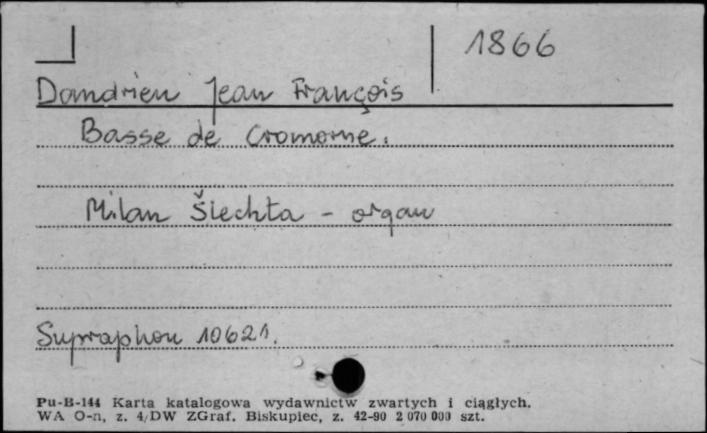 1866
Dandrieu Jean François
Basse de Cromorne.
Milan Šlechta - organ
Supraphon 10621.
Pu-B-144 Karta katalogowa wydawnictw zwartych i ciągłych.
WA O-n, z. 4/DW ZGraf. Biskupiec, z. 42-90 2 070 000 szt.